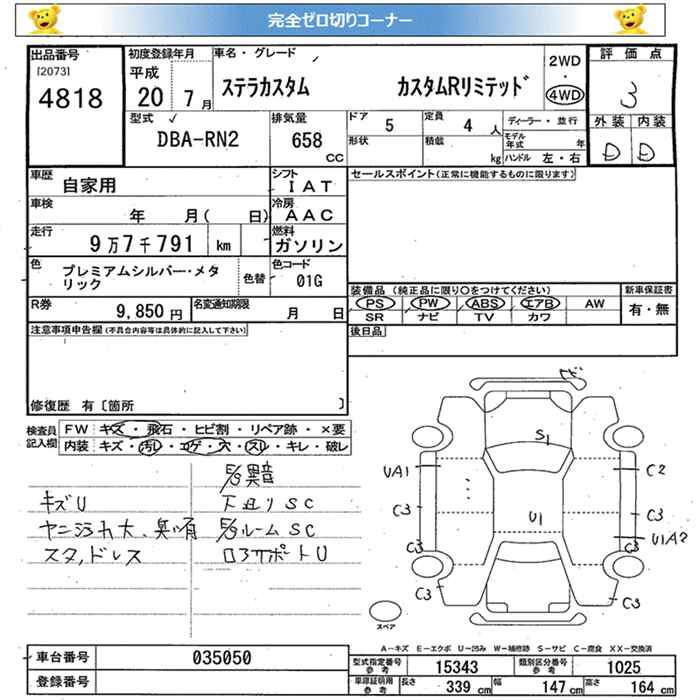 完全ゼロ切りコーナー
出品番号 初度登録年月 車名・グレード 2WD 評価点
[2073] 平成 ・
4818 20 7月 ステラカスタム カスタムRリミテッド 4WD 3
型式 排気量 ドア 5 定員 4人 ディーラー・並行 外装 内装
DBA-RN2 658 cc 形状 積載 kg モデル年式 年 D D
ハンドル 左・右
車歴 自家用 シフト IAT セールスポイント(正常に機能するものに限ります)
車検 年 月( 日) 冷房 AAC
走行 9万7千791 km 燃料 ガソリン
色 プレミアムシルバー・メタリック 色替 色コード 01G
装備品 (純正品に限り○をつけてください) 新車保証書
R券 9,850円 名変通知期限 月 日 PS PW ABS エアB AW 有・無
SR ナビ TV カワ
注意事項申告欄(不具合内容等は具体的に記入して下さい) 後日品
修復歴 有〔箇所 〕
検査員記入欄 FW キズ・飛石・ヒビ割・リペア跡・×要
内装 キズ・汚れ・コゲ・穴・スレ・キレ・破レ
キズU
下廻りSC
スタ,ドレス
トビ
S1
UA1 C2
U1
C3 C3
U1A2
C3 C3
C3 C3
スペア
A-キズ E-エクボ U-凹み W-補修跡 S-サビ C-腐食 XX-交換済
車台番号 035050 型式指定番号 参考 15343 類別区分番号 参考 1025
登録番号 車庫証明用 参考 長さ 339cm 幅 147cm 高さ 164cm